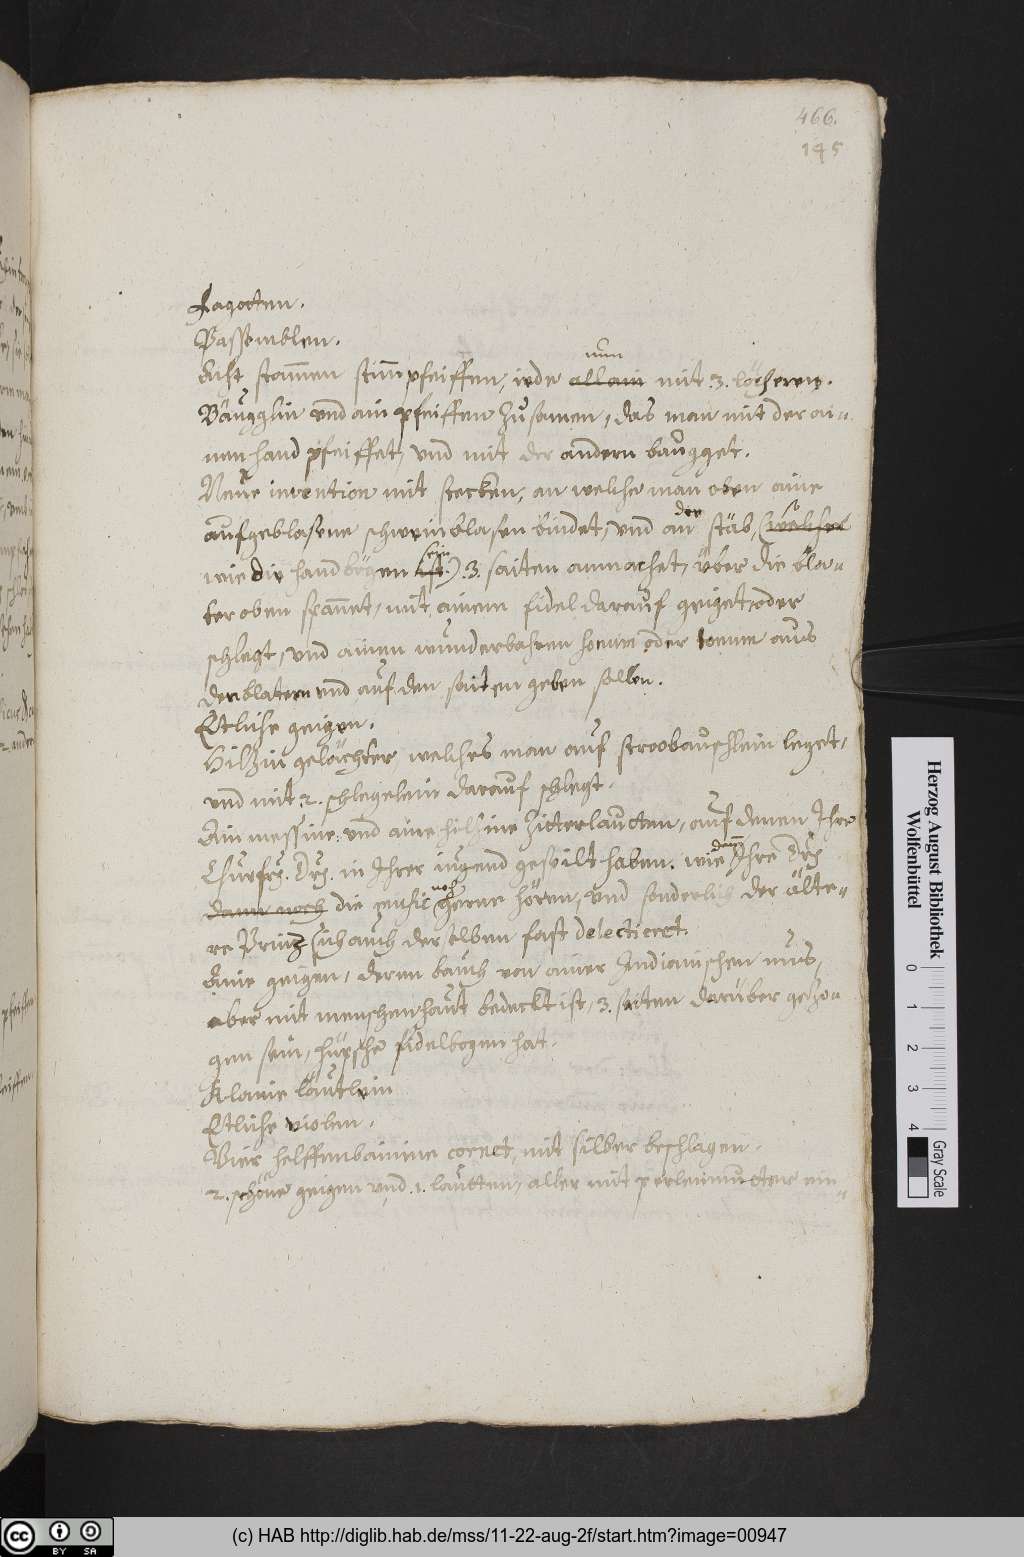 466.
145
Fagotten.
Bassemblen.
Acht stammen stimpfeiffen, iede allain mit .3. löcheren.
nun
Bäugglin vnd ain pfeiffen zusamen, das man mit der ai-
nen hand pfeiffet, vnd mit der andern baugget.
Neue invention mit stecken, an welche man oben aine
aufgeblasene schweinblasen bindet, vnd an stäb, (welche
der
so
wie die handbögen ist) .3. saiten anmachet, über die bla-
sein
ter oben spannet, mit ainem fidel darauf geiget, oder
schlegt, vnd ainen wunderbahren sonum oder tonum aus
der blatern vnd auf den saiten geben sollen.
Etliche geigen.
Hilzin gelächter welches man auf stroobauschlein leget,
vnd mit 2. schlegelein darauf schlegt.
Ain messine, vnd aine hilzine Zitterlautten, auf denen Ihre
Churfrs. Drs. in Ihrer iugend gespilt haben. wie Ihre Drs.
dann
dann noch die music gerne hören, vnd sonderlich der älte-
noch
re Prinz sich auch derselben fast delectieret.
Aine geigen, deren bauch von ainer Indianischen nus,
aber mit menschenhaut bedeckt ist, 3. saiten darüber gezo-
gen sein, hüpsche fidelbogen hat.
Klaine läutlein
Etliche violen.
Vier helffenbainine cornet, mit silber beschlagen.
2. schöne geigen vnd .1. lautten, aller mit perlenmutter ein-
Herzog August Bibliothek
Wolfenbüttel
0 1 2 3 4
Gray Scale
cc BY SA
(c) HAB http://diglib.hab.de/mss/11-22-aug-2f/start.htm?image=00947